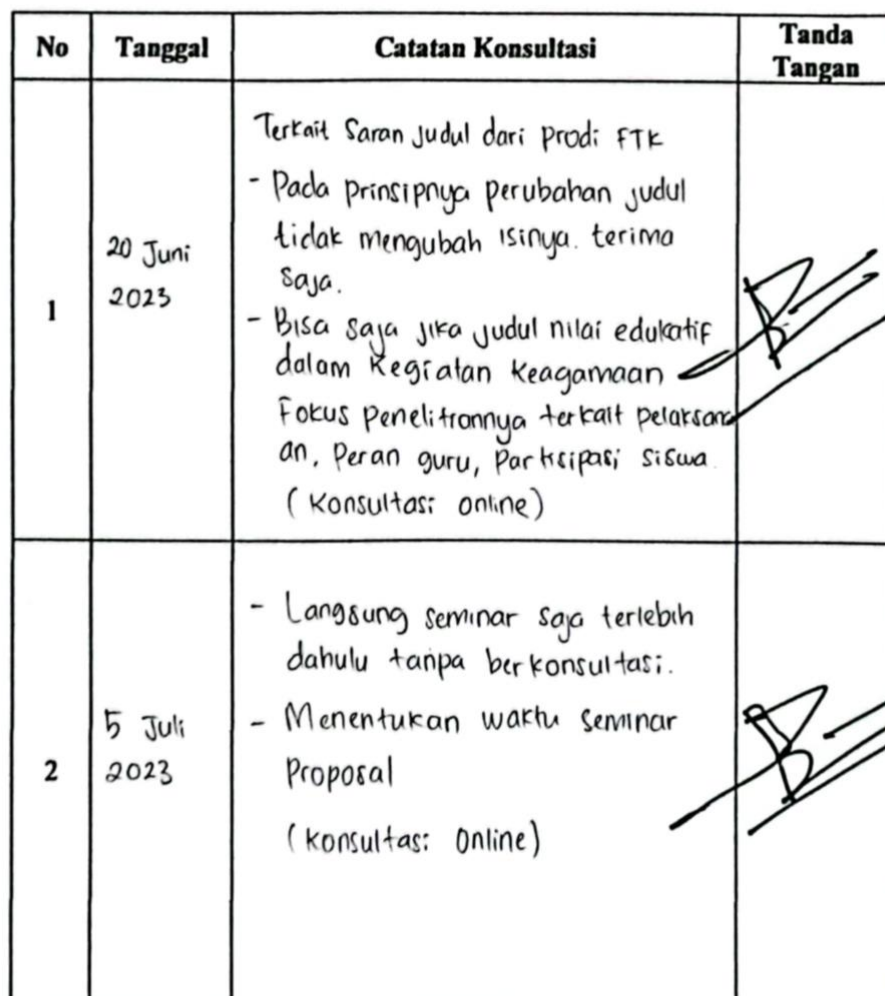 No Tanggal Catatan Konsultasi Tanda Tangan
1
20 Juni
2023
Terkait Saran Judul dari Prodi FTK
- Pada prinsipnya perubahan judul
tidak mengubah isinya. terima
saja.
- Bisa saja jika judul nilai edukatif
dalam Kegiatan Keagamaan
Fokus Penelitiannya terkait pelaksana
an, Peran guru, Partisipasi Siswa
(Konsultasi online)
2
5 Juli
2023
- Langsung seminar saja terlebih
dahulu tanpa berkonsultasi.
- Menentukan waktu Seminar
Proposal
(Konsultasi Online)